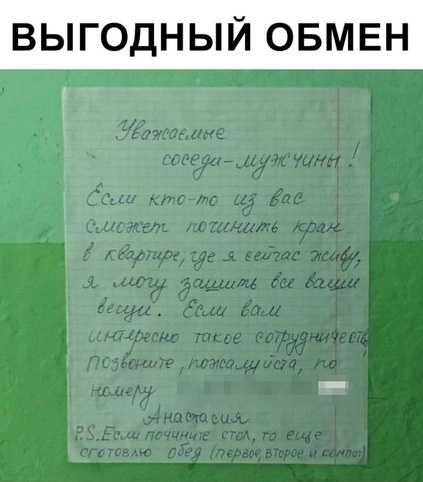 ВЫГОДНЫЙ ОБМЕН
Уважаемые
соседи-мужчины!
Если кто-то из вас
сможет починить кран
в квартире, где я сейчас живу,
я могу зашить все ваши
вещи. Если вам
интересно такое сотрудничество
позвоните, пожалуйста, по
номеру
Анастасия
P.S. Если почините стол, то еще
сготовлю обед (первое, второе и компот)